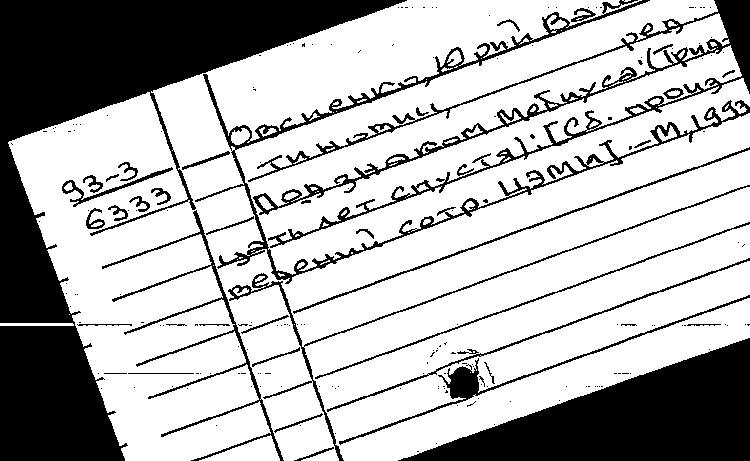 Овсиенко, Юрий Вален-
тинович, ред.
Под знаком Мебиуса: (Трид-
93-3
6333
цать лет спустя): [Сб. произ-
ведений сотр. ЦЭМИ]. - М, 1993